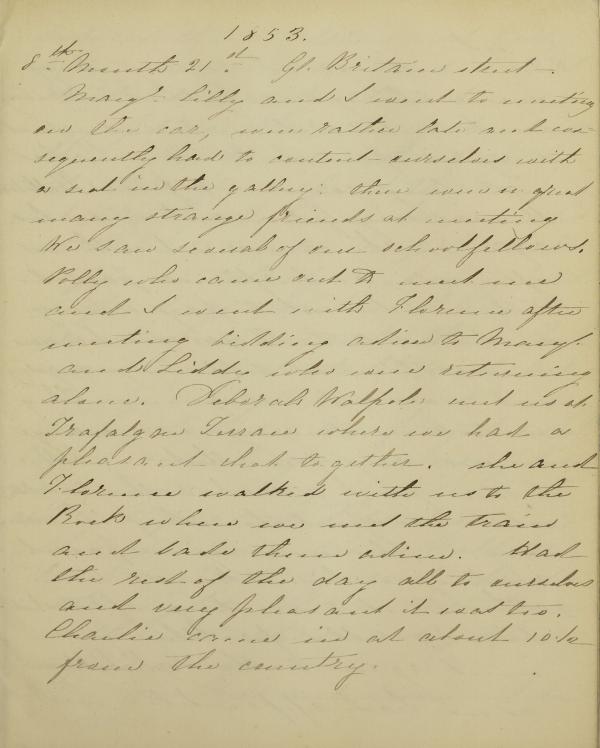 1853.
8th Month 21st. Gt. Britain street.
Mary, Lilly and I went to meeting
on the car, were rather late and con-
sequently had to content ourselves with
a seat in the gallery: there were a great
many strange friends at meeting
We saw several of our schoolfellows.
Polly who came out to meet me
and I went with Florence after
meeting bidding adieu to Mary
and Liddy who were returning
alone. Deborah Walpole met us at
Trafalgar Terrace where we had a
pleasant chat together. she and
Florence walked with us to the
Rock where we met the train
and bade them adieu. Had
the rest of the day all to ourselves
and very pleasant it was too.
Charlie came in at about 10½
from the country.